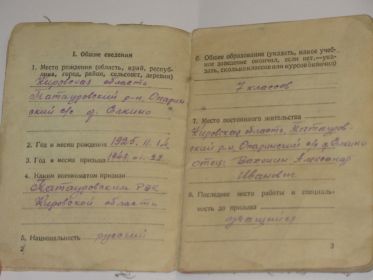 I. Общие сведения
1. Место рождения (область, край, республика, город, район, сельсовет, деревня)
Кировская область
Татауровский р-н,
с/с д.
2. Год и месяц рождения 1925. II.
3. Год и месяц призыва
4. Каким военкоматом призван
Татауровским РВК
Кировской области
5. Национальность русский
2
6. Общее образование (указать, какое учебное заведение окончил, если нет,—указать, сколько классов или курсов окончил)
7 классов
7. Место постоянного жительства
Кировская область, Татауровский
р-н, с/с д.
отец: Александр
Иванович
8. Последнее место работы и специальность до призыва
учащийся
3